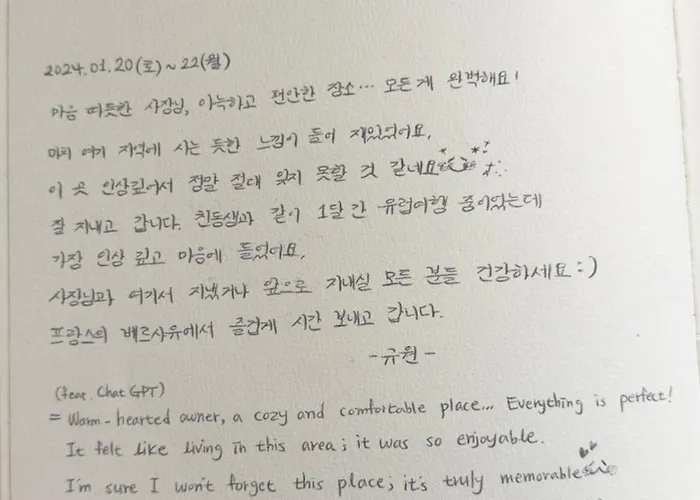 2024.01.20(토)~22(월)
마음 따뜻한 사장님, 아늑하고 편안한 장소… 모든게 완벽해요!
마치 여기 지역에 사는 듯한 느낌이 들어 재밌었어요.
이 곳 인상깊어서 정말 절대 잊지 못할 것 같네요
잘 지내고 갑니다. 친동생과 같이 1달간 유럽여행 중이었는데
가장 인상 깊고 마음에 들었어요.
사장님과 여기서 지냈거나 앞으로 지내실 모든 분들 건강하세요:)
프랑스의 베르사유에서 즐겁게 시간 보내고 갑니다.
-규원-
(feat. Chat GPT)
= Warm-hearted owner, a cozy and comfortable place... Everything is perfect!
It felt like living in this area; it was so enjoyable.
I'm sure I won't forget this place; it's truly memorable